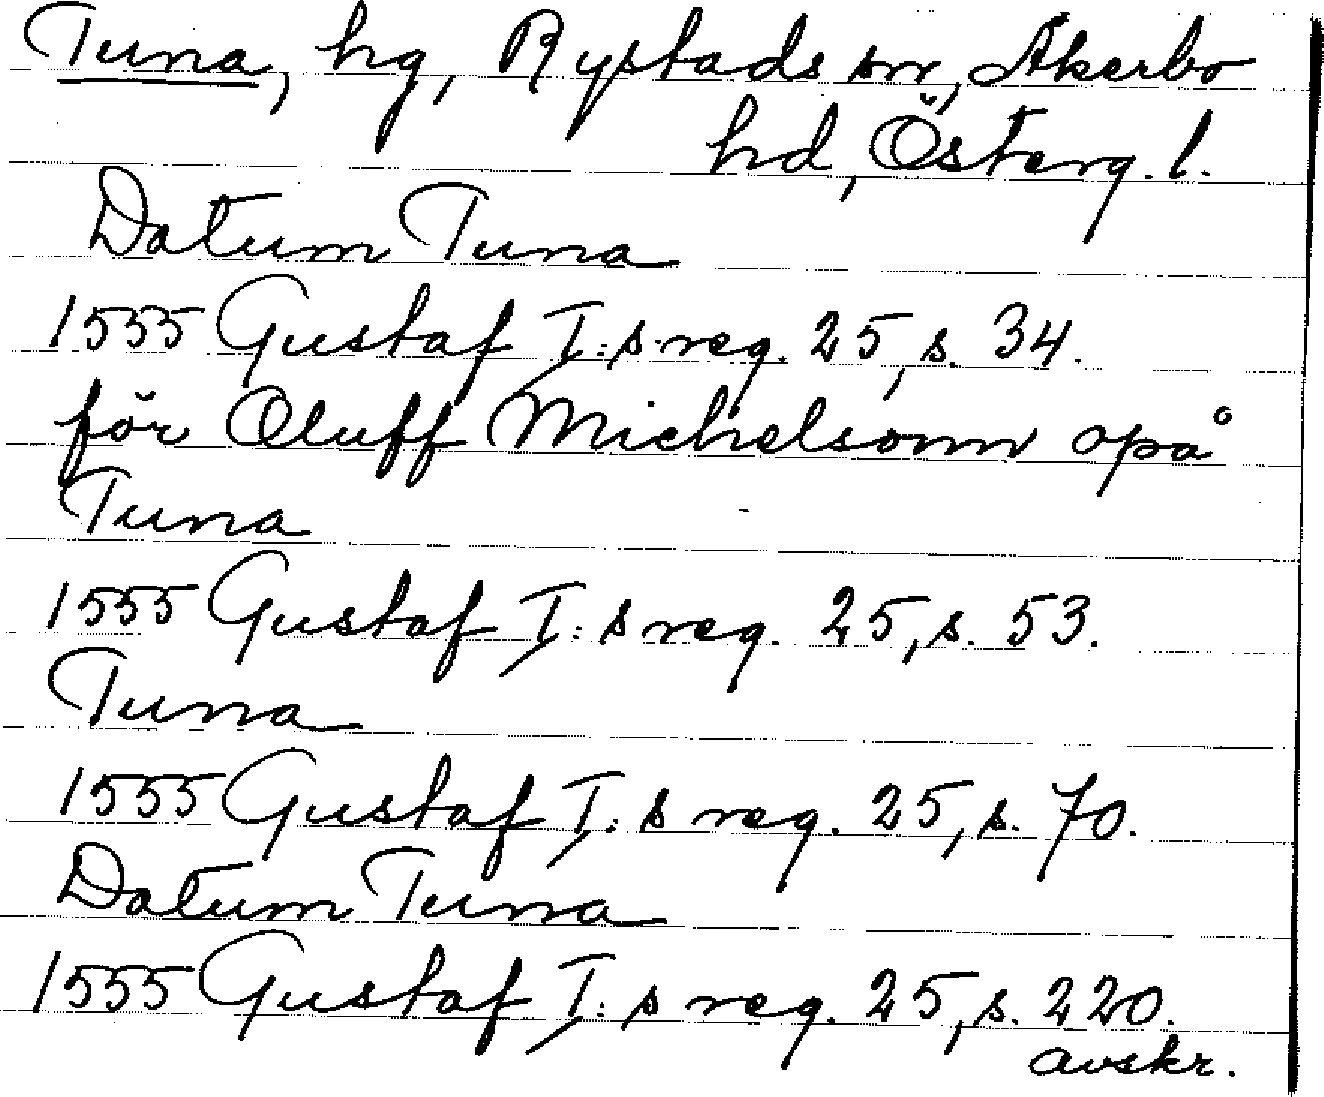 Tuna, hg, Rystads sn, Åkerbo
hd, Österg. l.
Datum Tuna
1555 Gustaf I:s reg. 25, s. 34.
för Oluff Michelsonn opå
Tuna
1555 Gustaf I:s reg. 25, s. 53.
Tuna
1555 Gustaf I:s reg. 25, s. 70.
Datum Tuna
1555 Gustaf I:s reg. 25, s. 220.
avskr.